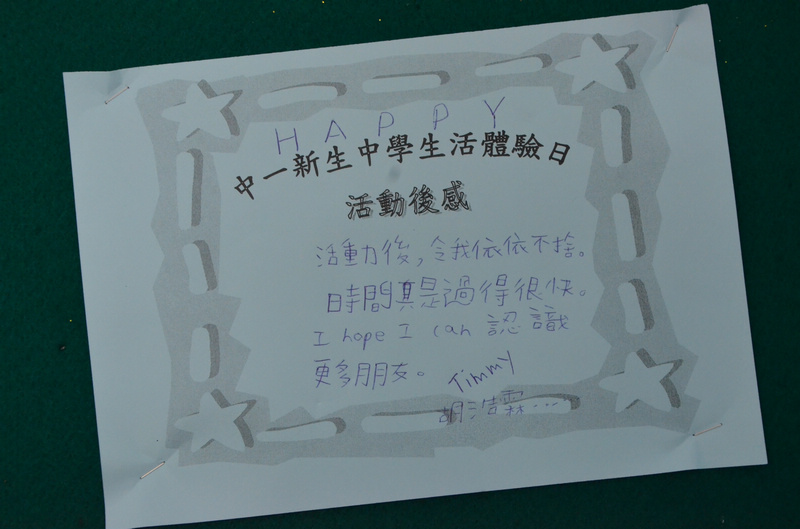 HAPPY
中一新生中學生活體驗日
活動後感
活動後,令我依依不捨。
時間真是過得很快。
I hope I can 認識
更多朋友。 Timmy
胡浩霖....